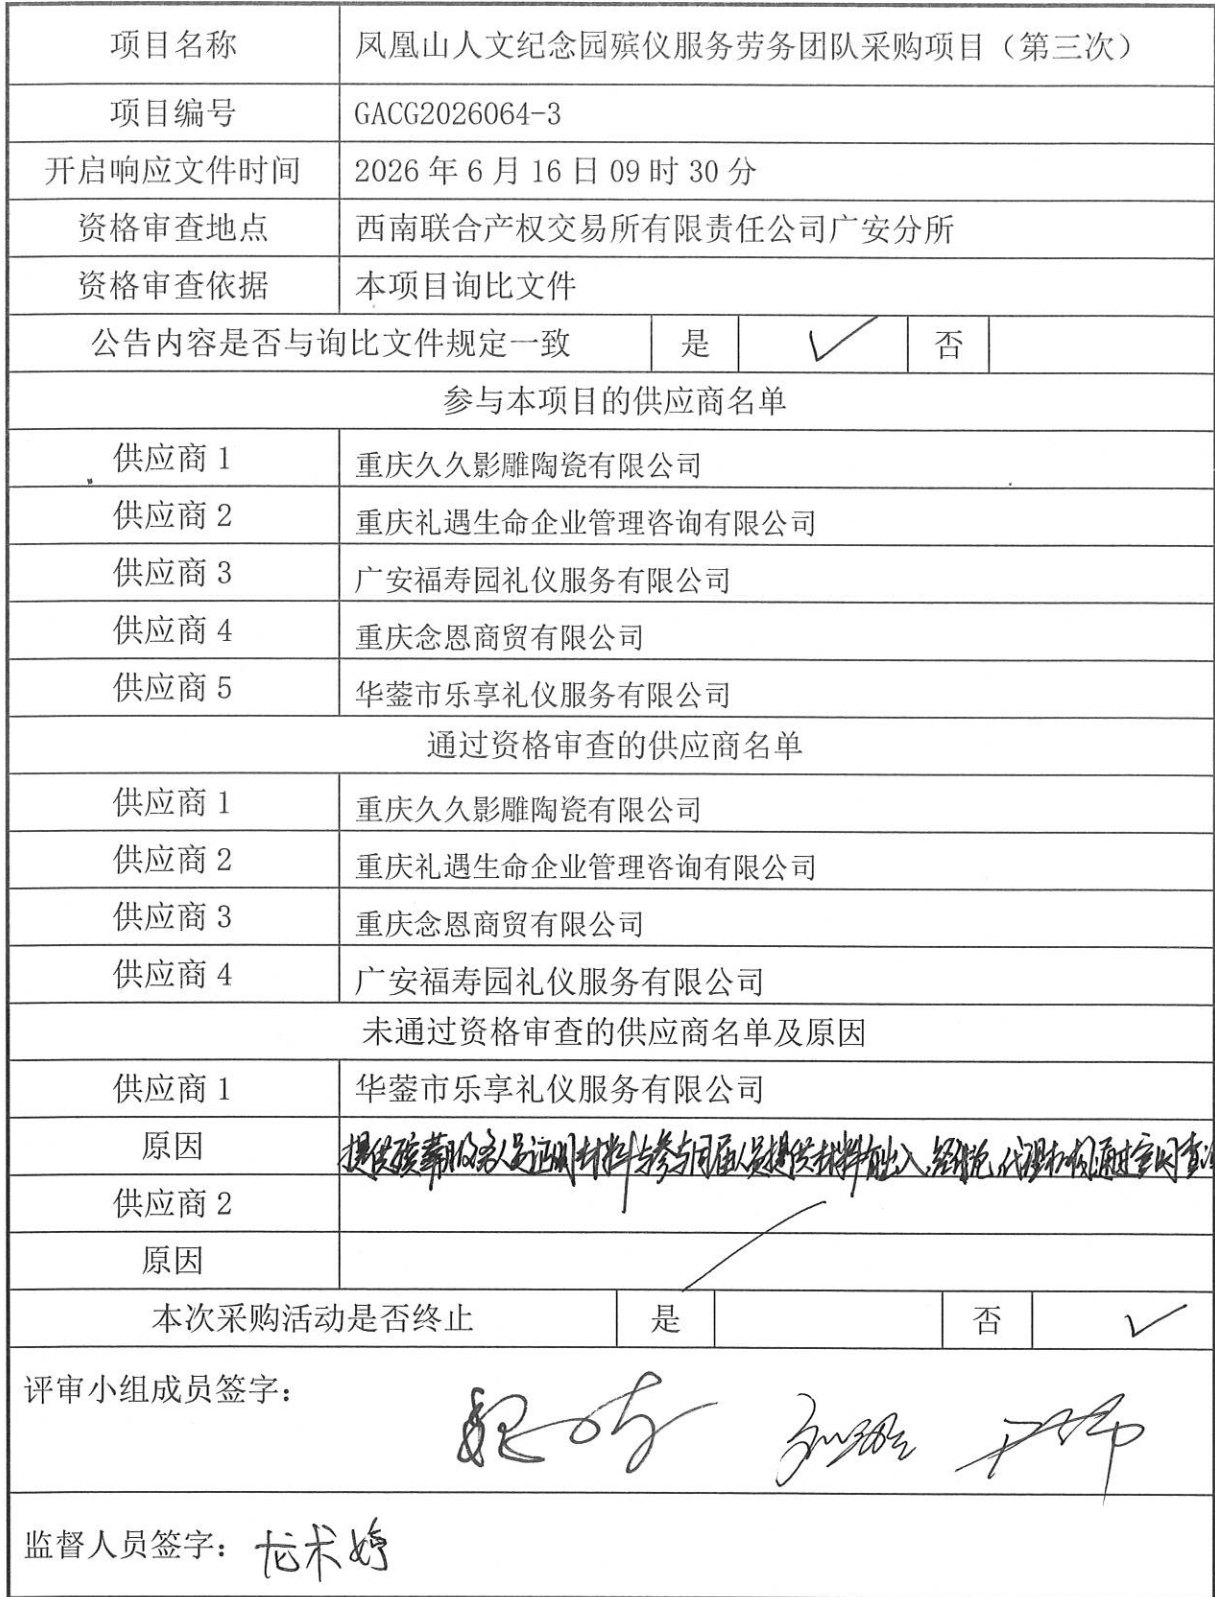 项目名称 凤凰山人文纪念园殡仪服务劳务团队采购项目（第三次）
项目编号 GACG2026064-3
开启响应文件时间 2026 年 6 月 16 日 09 时 30 分
资格审查地点 西南联合产权交易所有限责任公司广安分所
资格审查依据 本项目询比文件
公告内容是否与询比文件规定一致 是 ✓ 否
参与本项目的供应商名单
供应商 1 重庆久久影雕陶瓷有限公司
供应商 2 重庆礼遇生命企业管理咨询有限公司
供应商 3 广安福寿园礼仪服务有限公司
供应商 4 重庆念恩商贸有限公司
供应商 5 华蓥市乐享礼仪服务有限公司
通过资格审查的供应商名单
供应商 1 重庆久久影雕陶瓷有限公司
供应商 2 重庆礼遇生命企业管理咨询有限公司
供应商 3 重庆念恩商贸有限公司
供应商 4 广安福寿园礼仪服务有限公司
未通过资格审查的供应商名单及原因
供应商 1 华蓥市乐享礼仪服务有限公司
原因 提供殡葬服务人员证明材料与参与同届人员提供材料有出入，代理机构通过官网查
供应商 2
原因
本次采购活动是否终止 是 否 ✓
评审小组成员签字：
监督人员签字：龙术婷